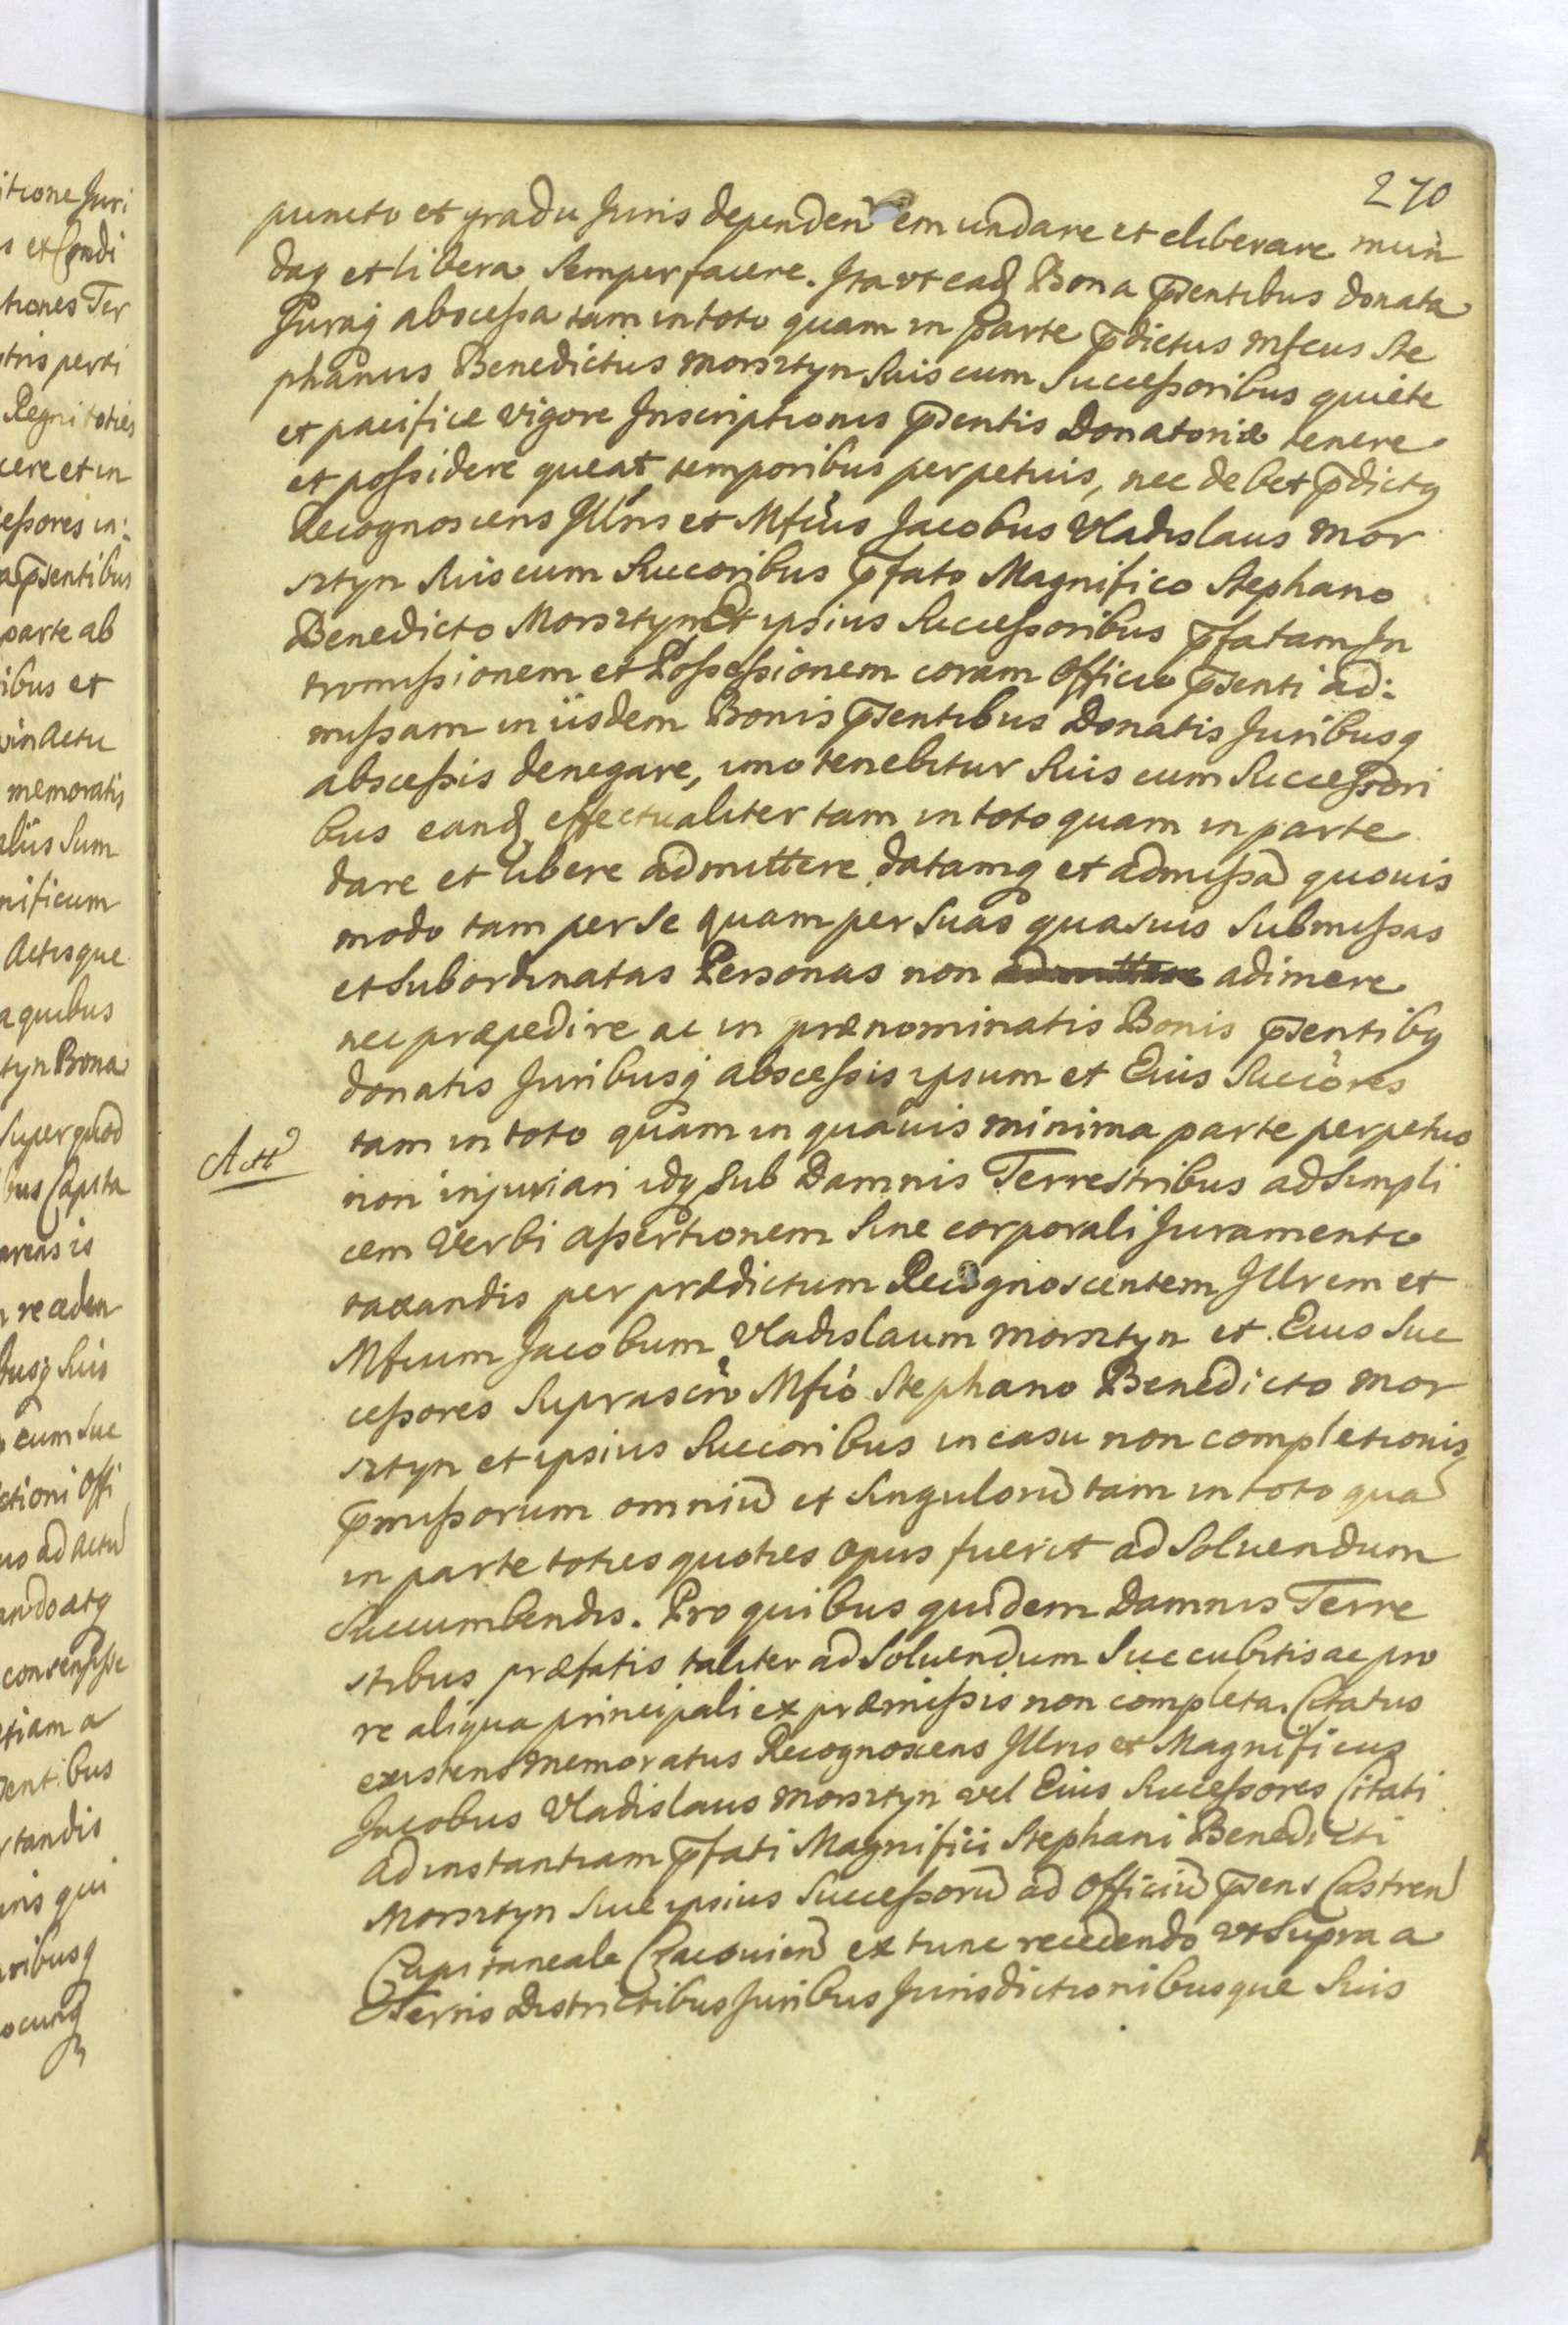 270
puncto et gradu Juris dependen̄ emundare et eliberare mun
daq et libera semper facere. Ita vt eadq Bona p̄sentibus donata
Juraq abscessa tam in toto quam in parte p̄dictus Mfcus Ste
phanus Benedictus Morsztyn suis cum Successoribus quiete
et pacifice vigore Inscriptionis p̄sentis Donatoriæ tenere
et possidere queat temporibus perpetuis, nec debet p̄dictq
Recognoscens Jllris et Mfcus Jacobus Vladislaus Mor
sztyn suis cum Succoribus p̄fato Magnifico Stephano
Benedicto Morsztyn Et ipsius Successoribus p̄fatam In
tromissionem et Possessionem coram Officio p̄senti ad:
missam in iisdem Bonis p̄sentibus Donatis Juribusq
abscessis denegare, imo tenebitur suis cum Successori
bus eandq effectualiter tam in toto quam in parte
dare et libere admittere, datamq et admissā quouis
modo tam per se quam per suas quasuis submissas
et subordinatas Personas non adimere
nec præpedire ac in prænominatis Bonis p̄sentibq
donatis Juribusq abscessis ipsum et Eius Succores
tam in toto quam in quauis minima parte perpetuo
Att
non injuriari idq sub Damnis Terrestribus ad simpli
cem Verbi assertionem sine corporali Juramento
taxandis per prædictum Recognoscentem Jllrem et
Mfcum Jacobum Vladislaum Morsztyn et Eius Suc
cessores suprascr̄o Mfco Stephano Benedicto Mor
sztyn et ipsius Succoribus in casu non completionis
p̄missorum omniū et singulorū tam in toto quā
in parte toties quoties opus fuerit ad soluendum
succumbendis. Pro quibus quidem Damnis Terre
stribus præfatis taliter ad soluendum succubitis ac pro
re aliqua principali ex præmissis non completa Citatus
existens memoratus Recognoscens Jllris et Magnificus
Jacobus Vladislaus Morsztyn vel Eius Successores Citati
ad instantiam p̄fati Magnifici Stephani Benedicti
Morsztyn siue ipsius Successorū ad Officiū p̄sens Castren̄
Capitaneale Cracouien̄ ex tunc recedendo vt supra a
Terris Districtibus Juribus Jurisdictionibusque suis